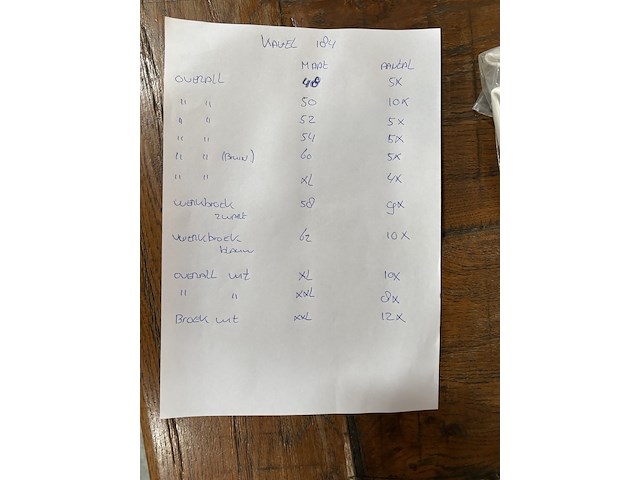 KAVEL 184
MAAT AANTAL
OVERALL 48 5X
" " 50 10X
" " 52 5X
" " 54 5X
" " (BRUIN) 60 5X
" " XL 4X
WERKBROEK 58 9X
ZWART
WERKBROEK 62 10X
BLAUW
OVERALL WIT XL 10X
" " XXL 8X
BROEK WIT XXL 12X